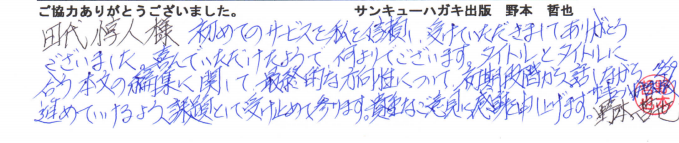 ご協力ありがとうございました。 サンキューハガキ出版 野本 哲也
田代惇人様 初めてのサービスを私を信頼し受けていただきましてありがとう
ございました。喜んでいただけたようで、何よりでございます。タイトルとタイトルに
合う本文の編集に関して、最終的な方向性について、初期段階から話しながら
進めていけるよう課題として受け止めて参ります。貴重なご意見に感謝申し上げます。野本哲也